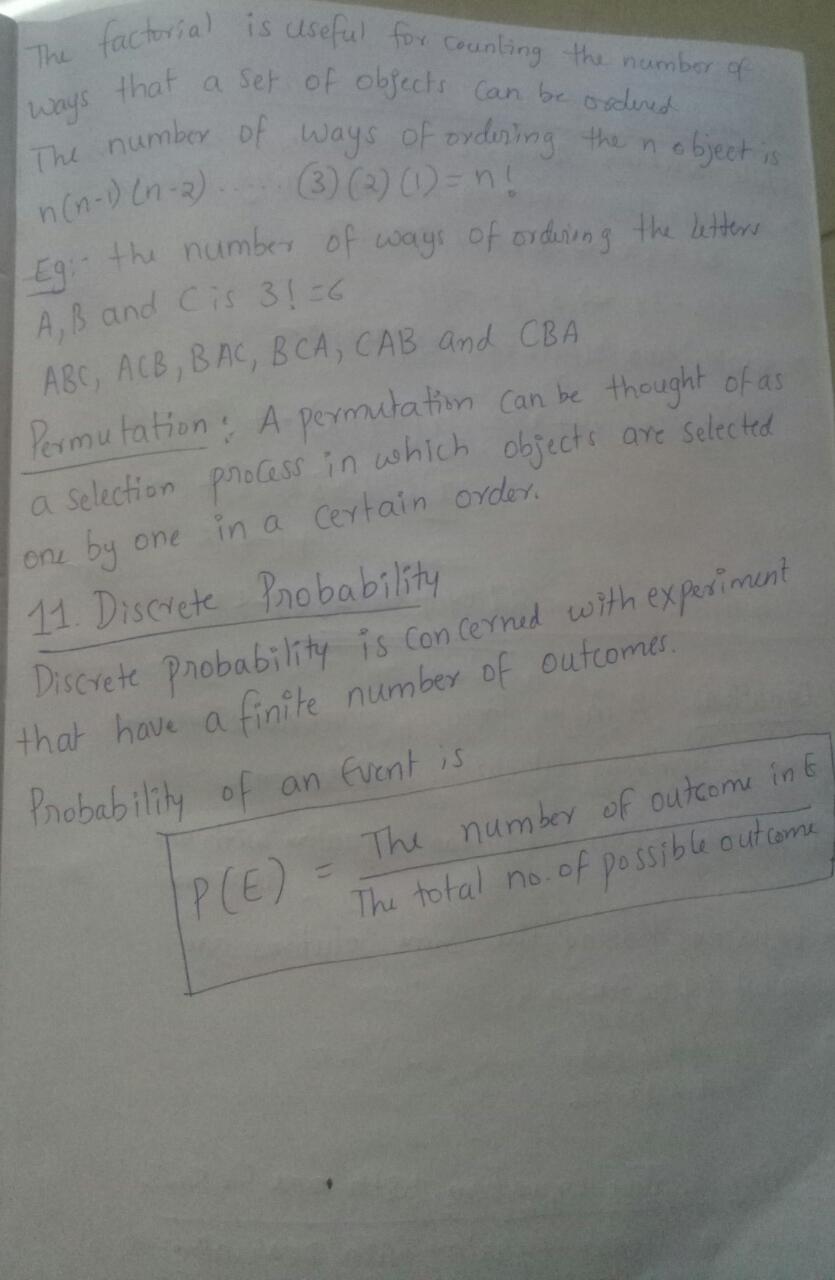 The factorial is useful for counting the number of
ways that a set of objects can be ordered
The number of ways of ordering the n object is
n(n-1)(n-2)...... (3)(2)(1)=n!
Eg:- the number of ways of ordering the letters
A,B and C is 3!=6
ABC, ACB, BAC, BCA, CAB and CBA
Permutation: A permutation can be thought of as
a selection process in which objects are selected
one by one in a certain order.
11. Discrete Probability
Discrete probability is concerned with experiment
that have a finite number of outcomes.
Probability of an Event is
P(E) = The number of outcome in E
The total no. of possible outcome